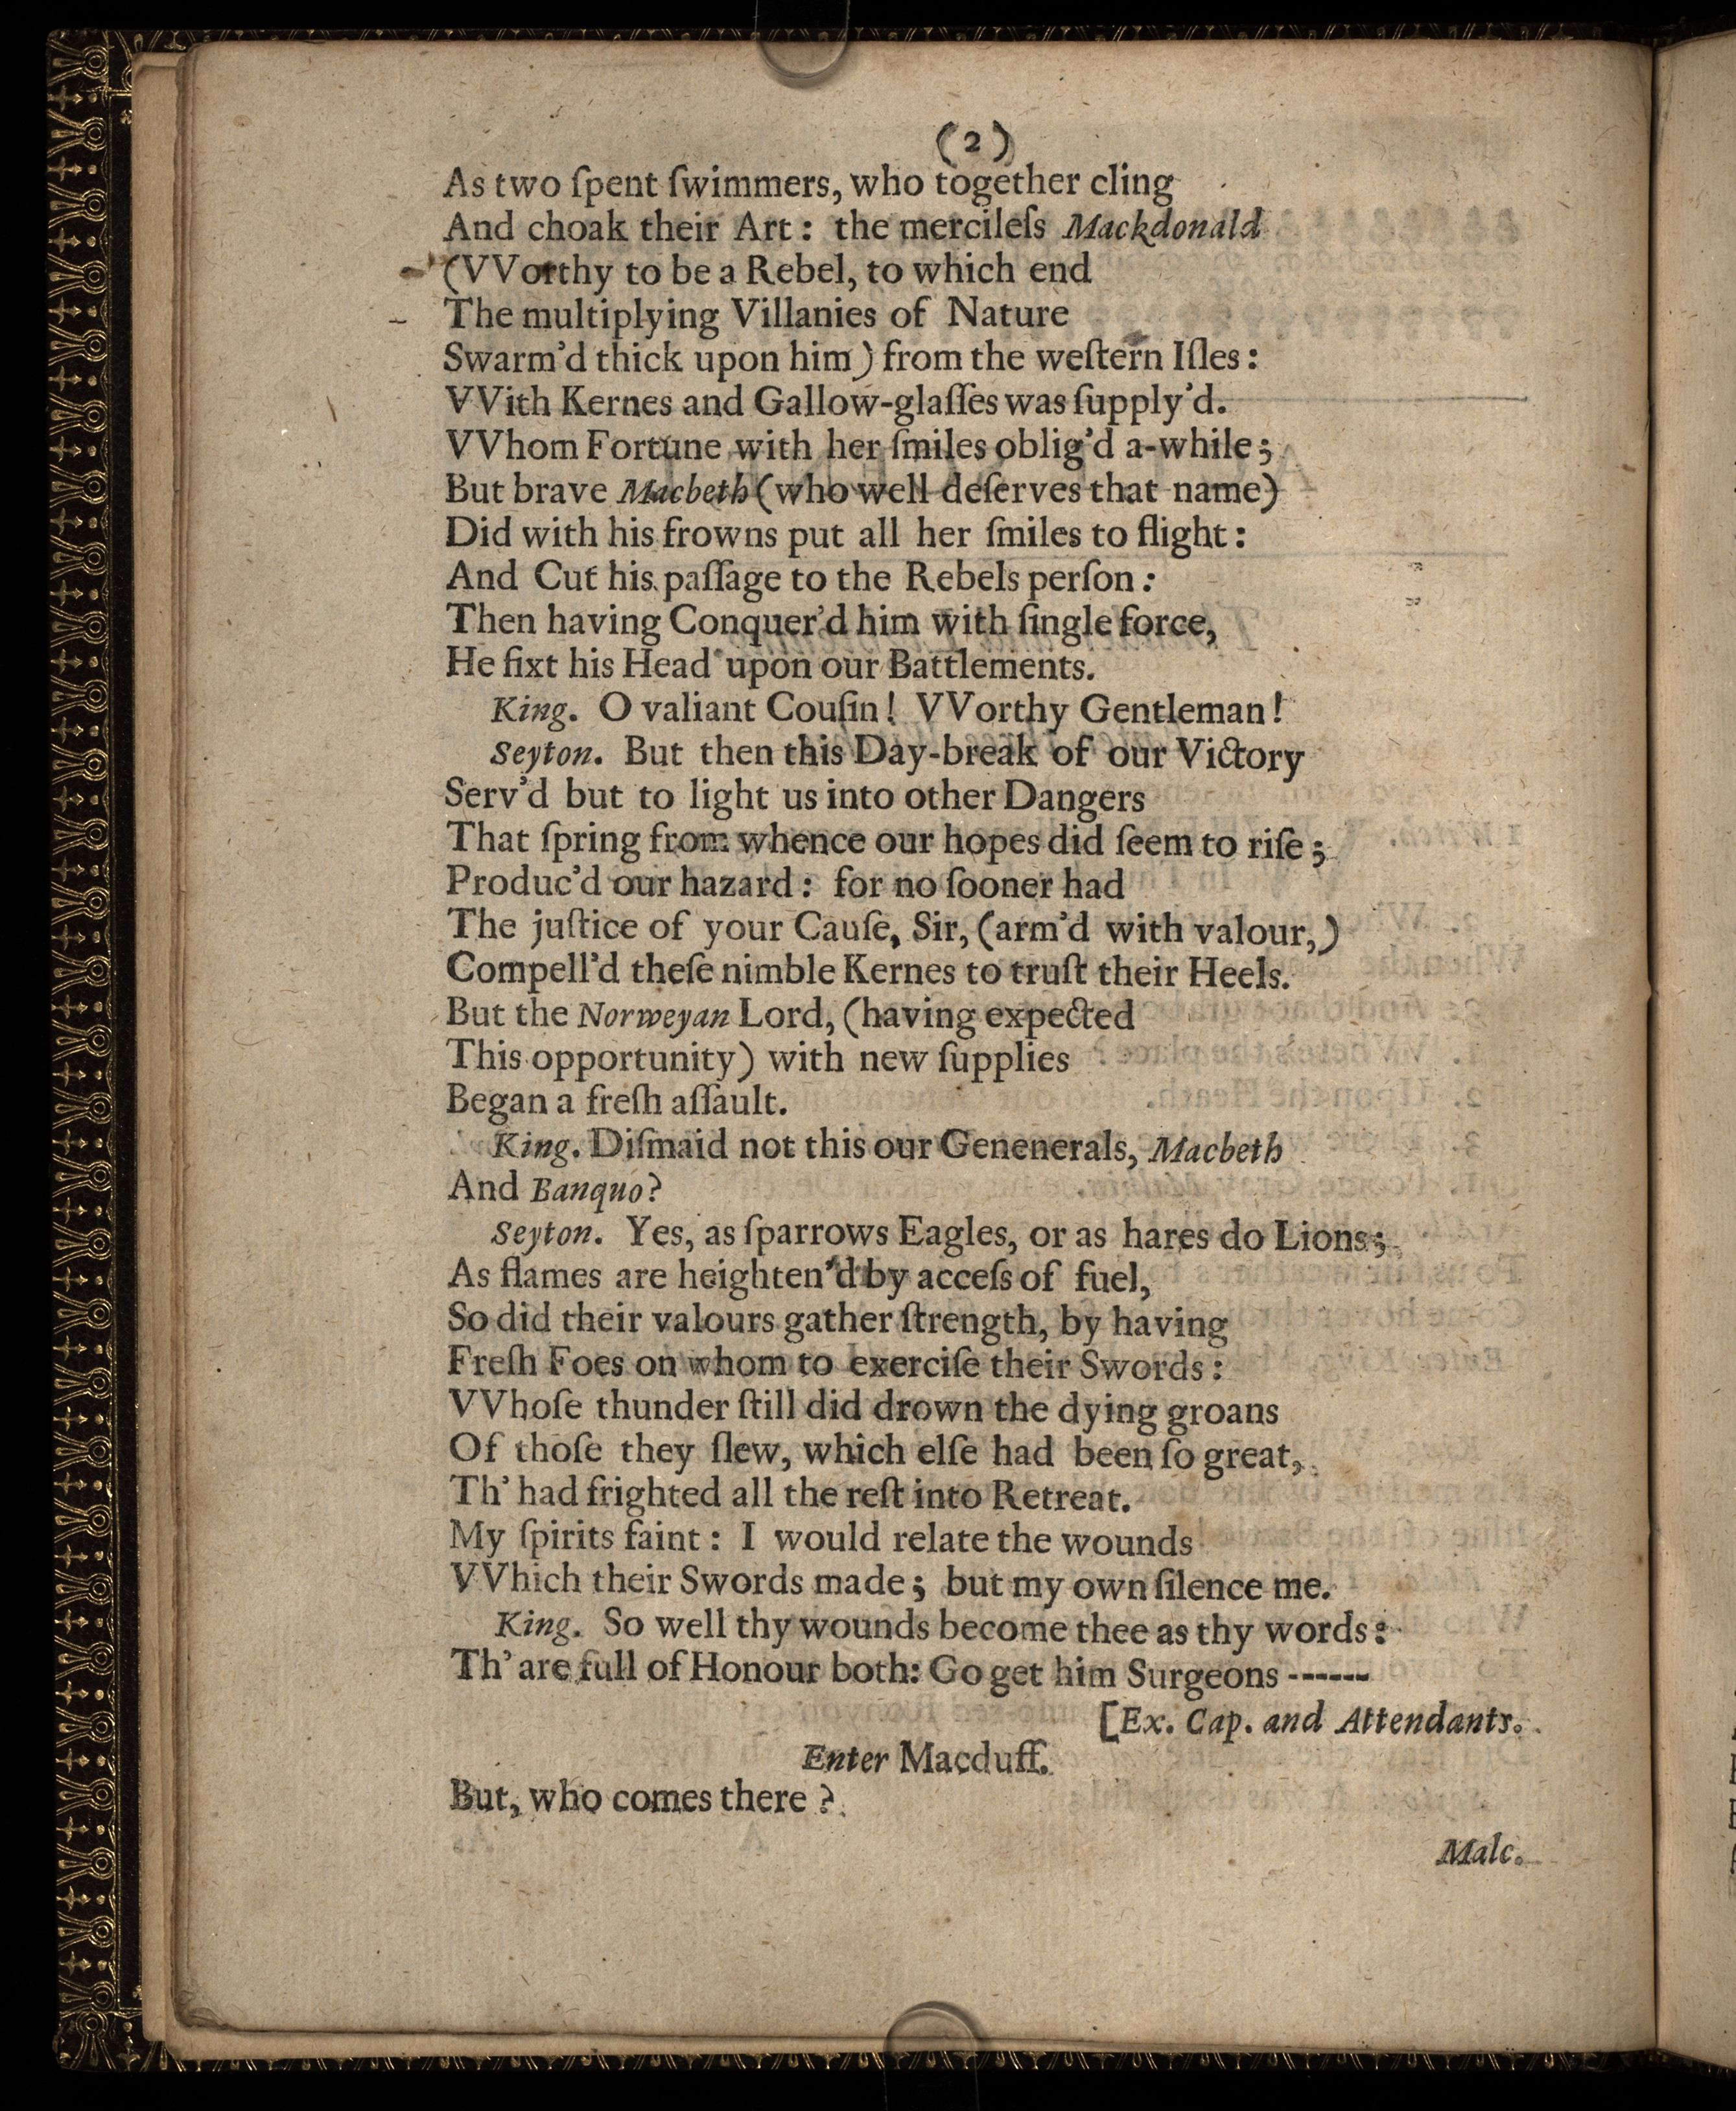 (2)
As two ſpent ſwimmers, who together cling
And choak their Art: the mercileſs Mackdonald
(VVorthy to be a Rebel, to which end
The multiplying Villanies of Nature
Swarm'd thick upon him) from the weſtern Iſles:
VVith Kernes and Gallow-glaſſes was ſupply'd.
VVhom Fortune with her ſmiles oblig'd a-while;
But brave Macbeth (who well deſerves that name)
Did with his frowns put all her ſmiles to flight:
And Cut his paſſage to the Rebels perſon:
Then having Conquer'd him with ſingle force,
He fixt his Head upon our Battlements.
King. O valiant Couſin! VVorthy Gentleman!
Seyton. But then this Day-break of our Victory
Serv'd but to light us into other Dangers
That ſpring from whence our hopes did ſeem to riſe;
Produc'd our hazard: for no ſooner had
The juſtice of your Cauſe, Sir, (arm'd with valour,)
Compell'd theſe nimble Kernes to truſt their Heels.
But the Norweyan Lord, (having expected
This opportunity) with new ſupplies
Began a freſh aſſault.
King. Diſmaid not this our Genenerals, Macbeth
And Banquo?
Seyton. Yes, as ſparrows Eagles, or as hares do Lions;
As flames are heighten'd by acceſs of fuel,
So did their valours gather ſtrength, by having
Freſh Foes on whom to exerciſe their Swords:
VVhoſe thunder ſtill did drown the dying groans
Of thoſe they ſlew, which elſe had been ſo great,
Th' had frighted all the reſt into Retreat.
My ſpirits faint: I would relate the wounds
VVhich their Swords made; but my own ſilence me.
King. So well thy wounds become thee as thy words:
Th' are full of Honour both: Go get him Surgeons ------
[Ex. Cap. and Attendants.
Enter Macduff.
But, who comes there?
Malc.